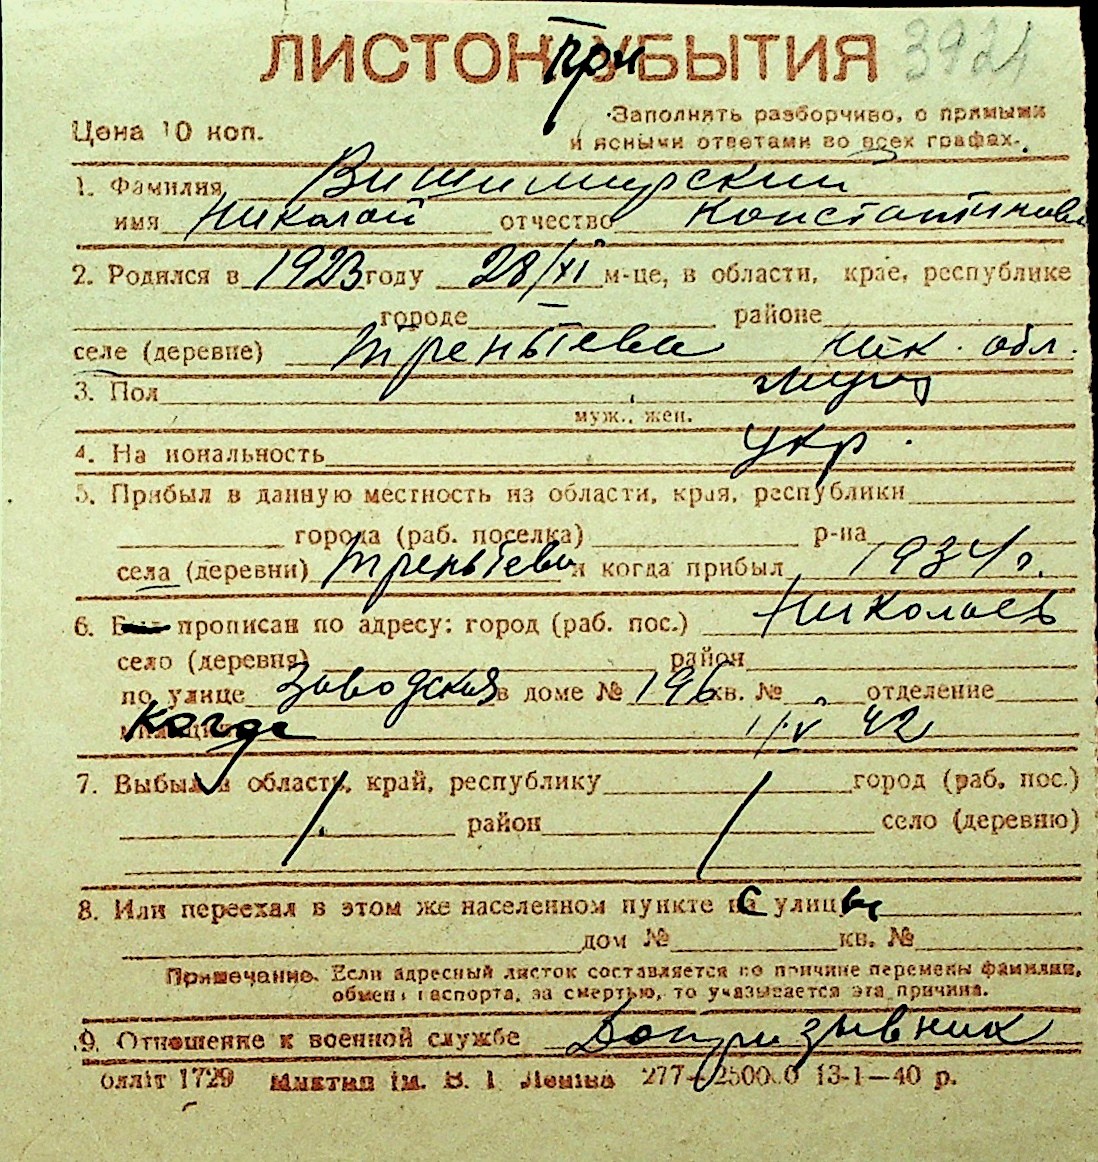 ЛИСТОК При УБЫТИЯ 3921
Цена 10 коп.
Заполнять разборчиво, с прямыми
и ясными ответами во всех графах.
1. Фамилия Витимирский
имя Николай отчество Константинови
2. Родился в 1923 году 28/XI м-це, в области, крае, республике
городе районе
селе (деревне) Треньтева Ник. обл.
3. Пол муж
муж., жен.
4. На иональность укр.
5. Прибыл в данную местность из области, края, республики
города (раб. поселка) р-на
села (деревни) Треньтева и когда прибыл 1934 г.
6. прописан по адресу: город (раб. пос.) Николаев
село (деревня) район
по улице Заводская в доме № 196 кв. № отделение
когда 1/V 42
7. Выбыл в область, край, республику город (раб. пос.)
район село (деревню)
8. Или переехал в этом же населенном пункте с улицы
дом № кв. №
Примечание. Если адресный листок составляется по причине перемены фамилии,
обмена паспорта, за смертью, то указывается эта причина.
9. Отношение к военной службе Допризывник
блліт 1729 Миктип ім. В. І. Леніна 277—250000 13-1—40 р.